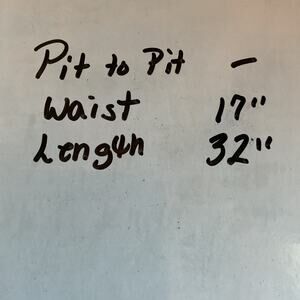 Pit to Pit –
Waist 17"
Length 32"